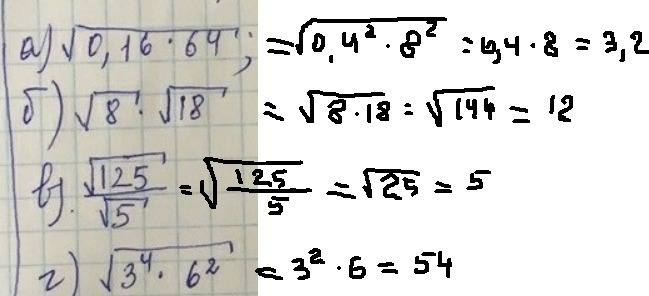 а) √0,16·64; = √0,4²·8² = 0,4·8 = 3,2
б) √8·√18 = √8·18 = √144 = 12
в) √125/√5 = √125/5 = √25 = 5
г) √3⁴·6² = 3²·6 = 54